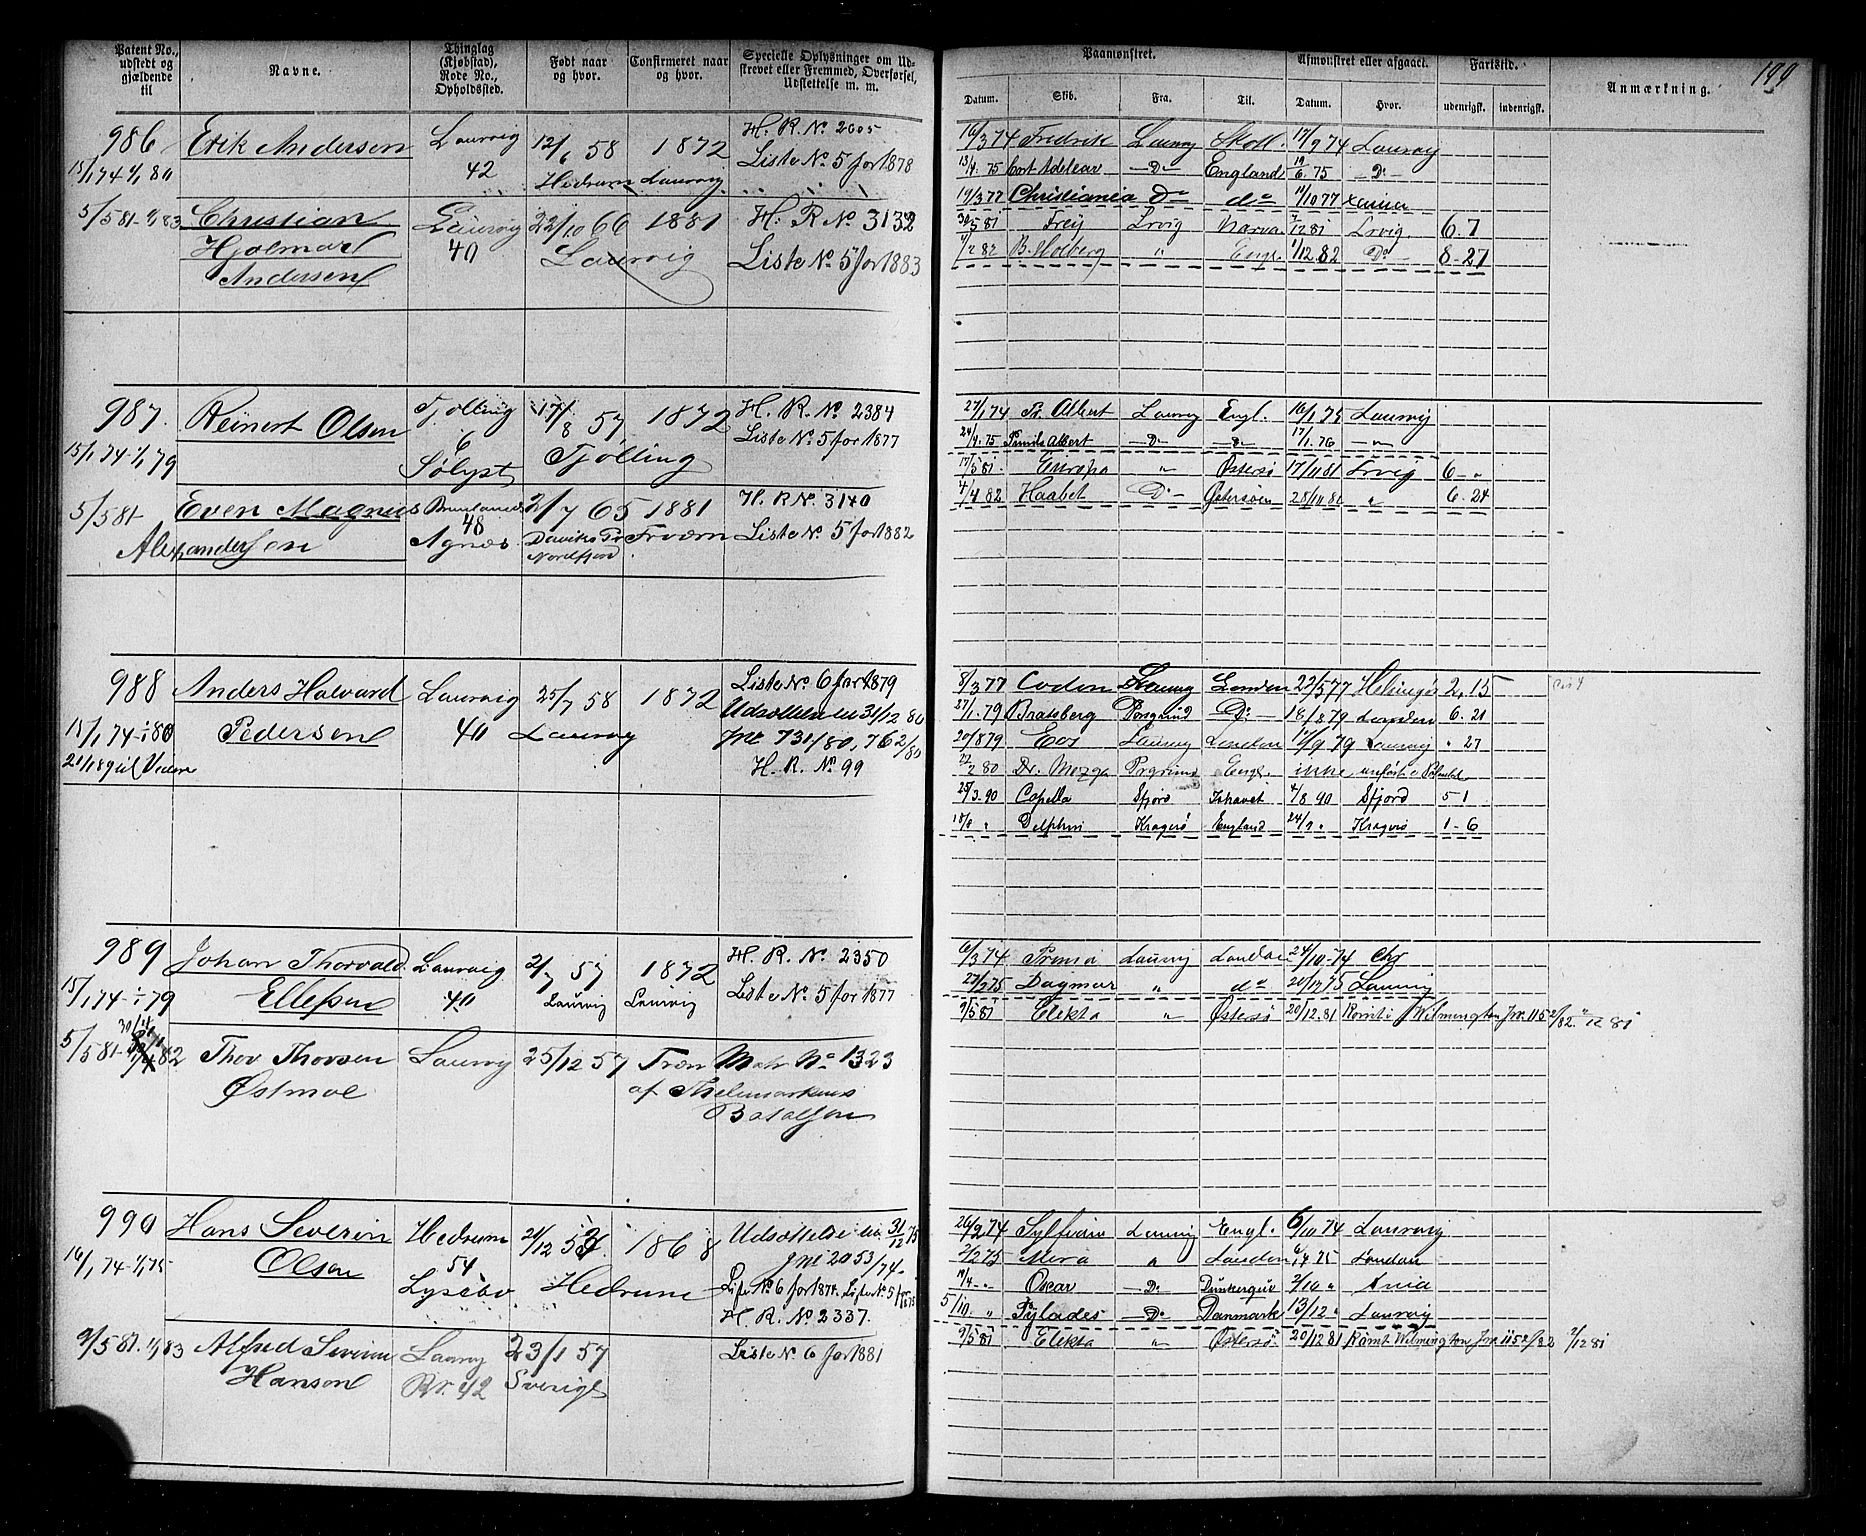 199
Patent No., udstedt og gjældende til
Navne.
Thinglag (Kjøbstad), Rode No., Opholdssted.
Født naar og hvor.
Confirmeret naar og hvor.
Specielle Oplysninger om Udskrevet eller Fremmed, Overførsel, Udslettelse m. m.
Paamønstret.
Afmønstret eller afgaaet.
Fartstid.
Anmærkning.
Datum. Skib. Fra. Til. Datum. Hvor. udenrigsk. indenrigsk.
986 Erik Andersen Laurvig 12/6 58 1872 H. R. No 2005
15/1 74 1/1 80 42 Hedrum Laurvig Liste No 5 for 1878
5/5 81 - 1/1 83 Christian Laurvig 22/10 66 1881 H. R No. 3132
Hjalmar 40 Laurvig Liste No 5 for 1883
Andersen
16/3 74 Fredrik Laurvig Skotl. 17/9 74 Laurvig
13/4 75 Cort Adelear — Do — England 19/6 75 — Do —
19/3 77 Christiania Do do 11/10 77
30/5 81 Frey Lrvig Narva 7/12 81 Lrvig. 6. 7
1/2 82 B. Holberg " Engl. 1/12 82 Do — 8 - 27
987. Reinert Olsen Tjølling 17/8 57 1872 H. R. No 2384
15/1 74 - 1/1 79 6 Tjølling Liste No 5 for 1877
Sølyst
5/5 81 Even Magnus 48 2/7 65 1881 H. R No. 3140
Alexandersen Agnæs Nordfjord Liste No 5 for 1882
27/1 74 Pr. Albert Laurvig Engl. 16/1 75 Laurvig
24/4 75 Prinds Albert — Do — — " — 17/1 76 — " —
14/5 81 Europa " Østersø 17/11 81 Lrvig 6 - "
4/4 82 Haabet Do — Østersøen 28/10 82 " 6. 24
988 Anders Halvard Laurvig 25/7 58 1872 Liste No 6 for 1879
15/1 74 - 1/1 80 Pedersen 40 Laurvig Udslettes 31/12 80
Jnl 731/80, 762/80
H. R. No 99
8/3 77 Codan Laurvig London 22/5 77 Helsingør 2, 15
27/1 79 Bratsberg Porsgrund — Do — 18/8 79 London 6. 21
20/8 79 Eos Laurvig London 17/9 79 Laurvig " 27
27/2 80 Engl. ikke
25/3 90 Capella Sfjord Ishavet 4/8 90 Sfjord 5 1
18/8 " Delphin Kragerø England 24/9 " Kragerø 1 - 6
989 Johan Thorvald Laurvig 2/7 57 1872 H. R. No. 2350
15/1 74 - 1/1 79 Ellefsen 40 Laurvig Laurvig Liste No 5 for 1877
5/5 81 - 82 Thor Thorsen Laurvig 25/12 57 Træn Matr No 1323
Østmoe af Thelemarkens
Bataljon
6/3 74 Prima Laurvig London 24/10 74 Chr
27/2 75 Dagmar " do 20/12 75 Laurvig
9/5 81 Elekta " Østersø 20/12 81 Rømt i Wilmington Jnr. 115 2/82. 2/12 81
990 Hans Severin Hedrum 21/12 1868 Udslettes 31/12 75
16/1 74 - 1/1 75 Olsen 54 Hedrum Jnl 2053/74
Lysebo Liste No 6 for 1874. Liste No 5 for 1875
H. R. No 2337.
9/5 81. 1/1 83 Alfred Severin Laurvig 23/1 57 Liste No 6 for 1881
Hanson Rr. 42 Sverige
26/2 74 Sylfiden Laurvig Engl. 6/10 74 Laurvig
2/2 75 Mira " London 6/4 75 London
19/4 " Oscar — Do Dunkerque 2/10 "
5/10. " Pylades — Do Danmark 13/12 " Laurvig
9/5 81 Elekta " Østersø 20/12 81 Rømt Wilmington Jnr. 115 2/82 2/12 81